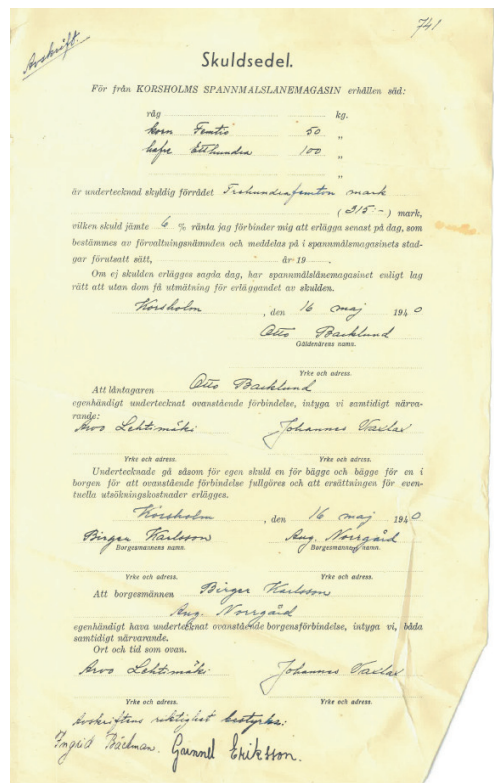 741
Avskrift.
Skuldsedel.
För från KORSHOLMS SPANNMÅLSLÅNEMAGASIN erhållen säd:
råg kg.
korn Femtio 50 „
hafre Etthundra 100 „
„
är undertecknad skyldig förrådet Trehundrafemton mark
(315:-) mark,
vilken skuld jämte 6 % ränta jag förbinder mig att erlägga senast på dag, som
bestämmes av förvaltningsnämnden och meddelas på i spannmålsmagasinets stad-
gar förutsatt sätt, år 19 .
Om ej skulden erlägges sagda dag, har spannmålslånemagasinet enligt lag
rätt att utan dom få utmätning för erläggandet av skulden.
Korsholm , den 16 maj 1940
Otto Backlund
Gäldenärens namn.
Yrke och adress.
Att låntagaren Otto Backlund
egenhändigt undertecknat ovanstående förbindelse, intyga vi samtidigt närva-
rande:
Arvo Lehtimäki Johannes Taxlax
Yrke och adress. Yrke och adress.
Undertecknade gå såsom för egen skuld en för bägge och bägge för en i
borgen för att ovanstående förbindelse fullgöres och att ersättningen för even-
tuella utsökningskostnader erlägges.
Korsholm , den 16 maj 1940
Birger Karlsson Aug. Norrgård
Borgesmannens namn. Borgesmannens namn.
Yrke och adress. Yrke och adress.
Att borgesmännen Birger Karlsson
Aug. Norrgård
egenhändigt hava undertecknat ovanstående borgensförbindelse, intyga vi, båda
samtidigt närvarande.
Ort och tid som ovan.
Arvo Lehtimäki Johannes Taxlax
Yrke och adress. Yrke och adress.
Avskriftens riktighet bestyrka:
Ingrid Bäckman. Gunnel Eriksson.